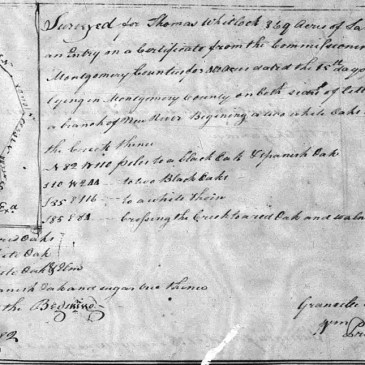 Surveyed for Thomas Whitlock 369 Acres of La
an Entry on a Certificate from the Commissioner
Montgomery Counties for dated the 15th day o
lying in Montgomery County on both sides of
a branch of New River Begining a two white Oaks
the Creek Thence
N 82 W 110 poles to a black Oak & Spanish Oak
S 10 W 44 to two Black Oaks
S 55 E 116 to a white thorn
S 85 E 84 crossing the Creek to a red Oak and
red Oaks
Oak
Oak & Elm
Spanish Oak and sugar tree thence
the Begining
Granville
Wm Pr